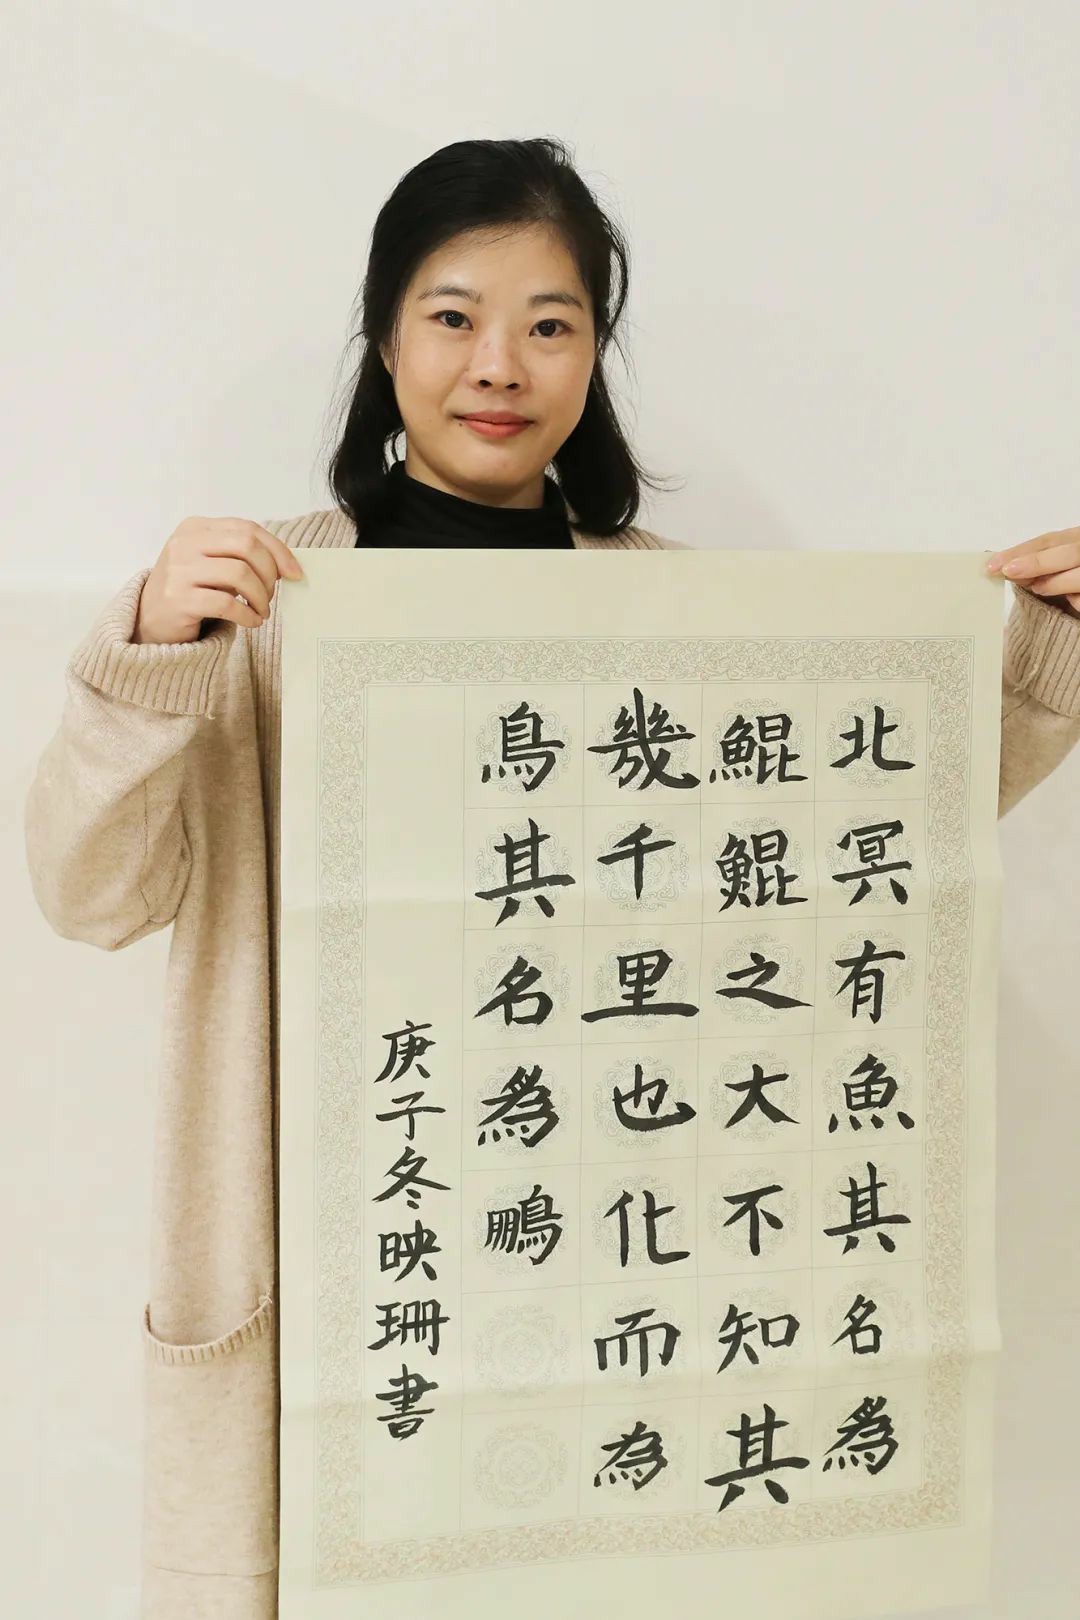 北冥有魚其名為
鯤鯤之大不知其
幾千里也化而為
鳥其名為鵬
庚子冬映珊書